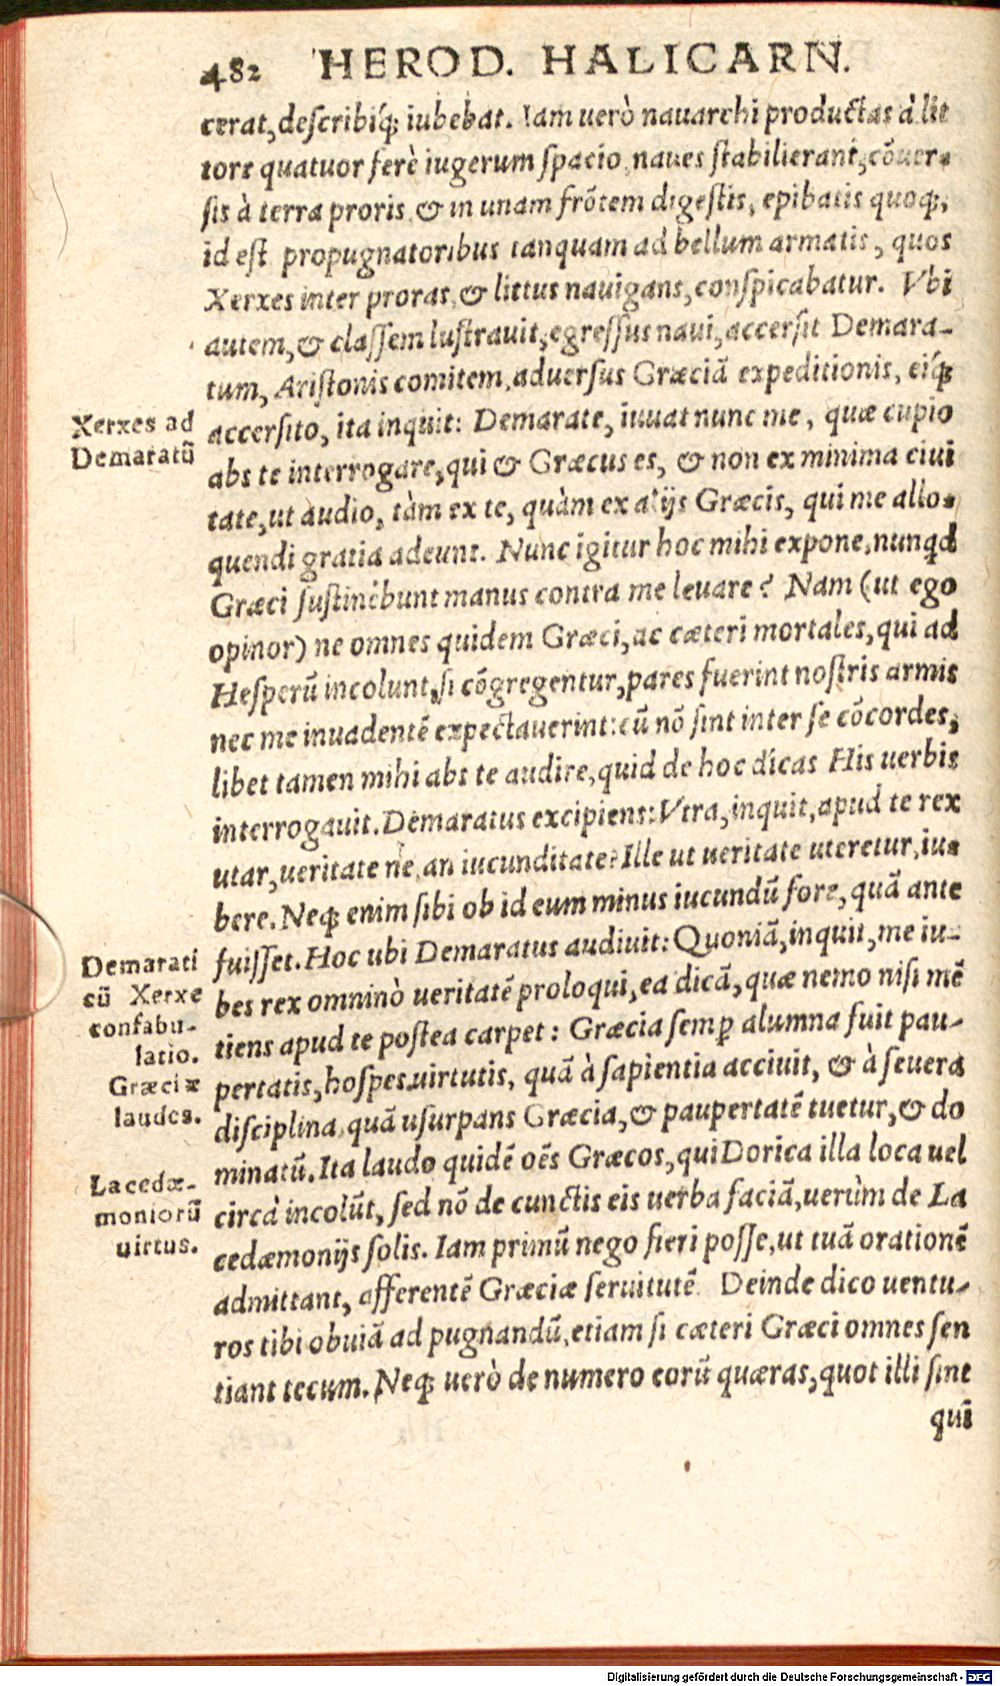 482 HEROD. HALICARN.
cerat, describíq; iubebat. Iam uerò nauarchi productas à lit
tore quatuor ferè iugerum spacio, naues stabilierant, cõuer-
sis à terra proris, & in unam frõtem digestis, epibatis quoq;,
id est propugnatoribus tanquam ad bellum armatis, quos
Xerxes inter proras, & littus nauigans, conspicabatur. Vbi
autem, & classem lustrauit, egressus naui, accersit Demara-
tum, Aristonis comitem, aduersus Græciã expeditionis, eíq;
Xerxes ad
Demaratũ
accersito, ita inquit: Demarate, iuuat nunc me, quæ cupio
abs te interrogare, qui & Græcus es, & non ex minima ciui
tate, ut audio, tàm ex te, quàm ex alijs Græcis, qui me allo-
quendi gratia adeunt. Nunc igitur hoc mihi expone, nunqd
Græci sustinebunt manus contra me leuare? Nam (ut ego
opinor) ne omnes quidem Græci, ac cæteri mortales, qui ad
Hesperũ incolunt, si cõgregentur, pares fuerint nostris armis
nec me inuadentẽ expectauerint: cũ nõ sint inter se cõcordes,
libet tamen mihi abs te audire, quid de hoc dicas His uerbis
interrogauit. Demaratus excipiens: Vtra, inquit, apud te rex
utar, ueritate ne, an iucunditate? Ille ut ueritate uteretur, iu-
bere. Neq; enim sibi ob id eum minus iucundũ fore, quã ante
fuisset. Hoc ubi Demaratus audiuit: Quoniã, inquit, me iu-
Demarati
cũ Xerxe
confabu-
latio.
Græciæ
laudes.
bes rex omninò ueritatẽ proloqui, ea dicã, quæ nemo nisi mẽ
tiens apud te postea carpet: Græcia semp alumna fuit pau-
pertatis, hospes uirtutis, quã à sapientia acciuit, & à seuera
disciplina, quã usurpans Græcia, & paupertatẽ tuetur, & do
minatũ. Ita laudo quidẽ oẽs Græcos, qui Dorica illa loca uel
Lacedæ-
moniorũ
uirtus.
circà incolũt, sed nõ de cunctis eis uerba faciã, uerùm de La
cedæmonijs solis. Iam primũ nego fieri posse, ut tuã orationẽ
admittant, afferentẽ Græciæ seruitutẽ. Deinde dico uentu-
ros tibi obuiã ad pugnandũ, etiam si cæteri Græci omnes sen
tiant tecum. Neq; uerò de numero eorũ quæras, quot illi sint
qui
Digitalisierung gefördert durch die Deutsche Forschungsgemeinschaft - DFG